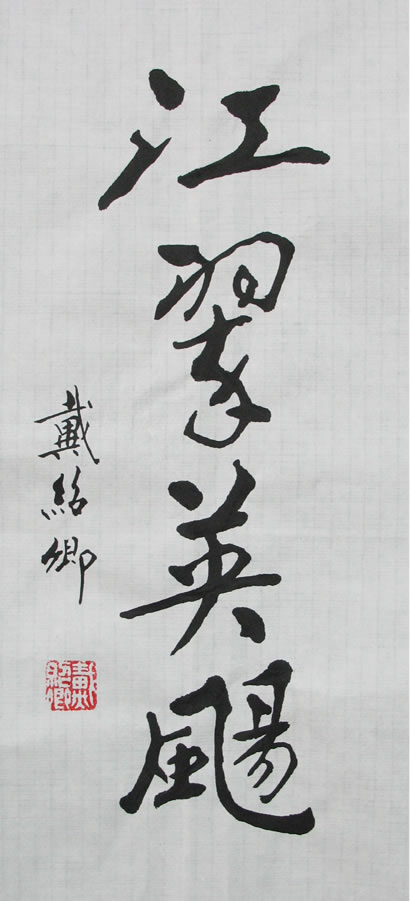 江翠英颺
戴紹卿
戴紹卿